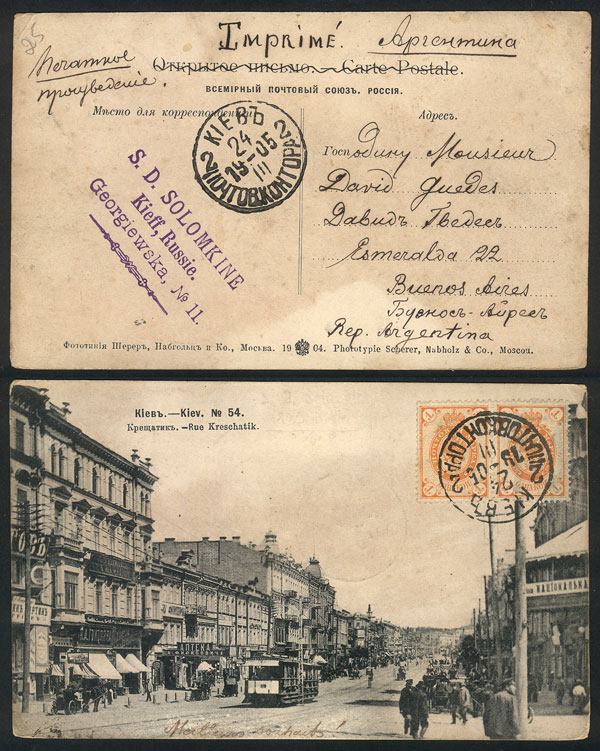 25
Imprimé.
Аргентина
Печатное
произведеніе.
Открытое письмо. — Carte Postale.
ВСЕМІРНЫЙ ПОЧТОВЫЙ СОЮЗЪ. РОССІЯ.
Мѣсто для корреспонденціи
Адресъ.
КІЕВЪ
24
VI 05
19 III
2 ПОЧТОВ.КОНТОРА 2
S. D. SOLOMKINE
Kieff, Russie.
Georgiewska, № 11.
Господину Monsieur
David Guedes
Давидъ Гведесъ
Esmeralda 22
Buenos Aires
Буэносъ-Айресъ
Rep. Argentina
Фототипія Шереръ, Набгольцъ и Ко., Москва. 19 04. Phototypie Scherer, Nabholz & Co., Moscou.
Кіевъ.—Kiev. № 54.
Крещатикъ.—Rue Kreschatik.
1 1
1 1
2 ПОЧТОВ.КОНТОРА 2
КІЕВЪ
АПТЕКА
НАЦІОНАЛЬН